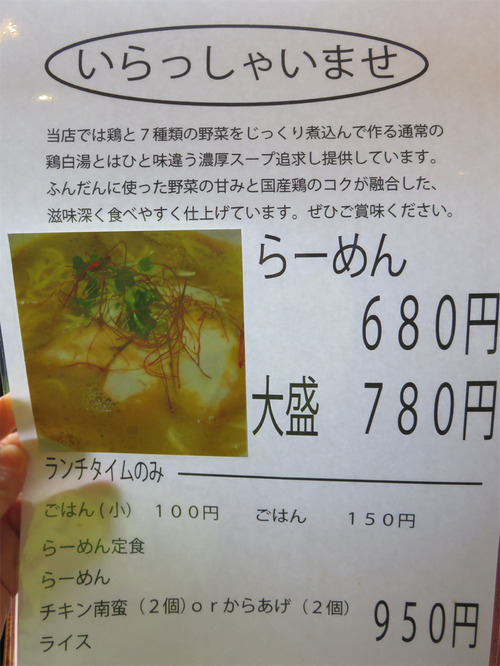 いらっしゃいませ
当店では鶏と７種類の野菜をじっくり煮込んで作る通常の
鶏白湯とはひと味違う濃厚スープ追求し提供しています。
ふんだんに使った野菜の甘みと国産鶏のコクが融合した、
滋味深く食べやすく仕上げています。ぜひご賞味ください。
らーめん
６８０円
大盛　７８０円
ランチタイムのみ
ごはん(小)　１００円　ごはん　１５０円
らーめん定食
らーめん
チキン南蛮（２個)ｏｒからあげ（２個）
ライス
９５０円